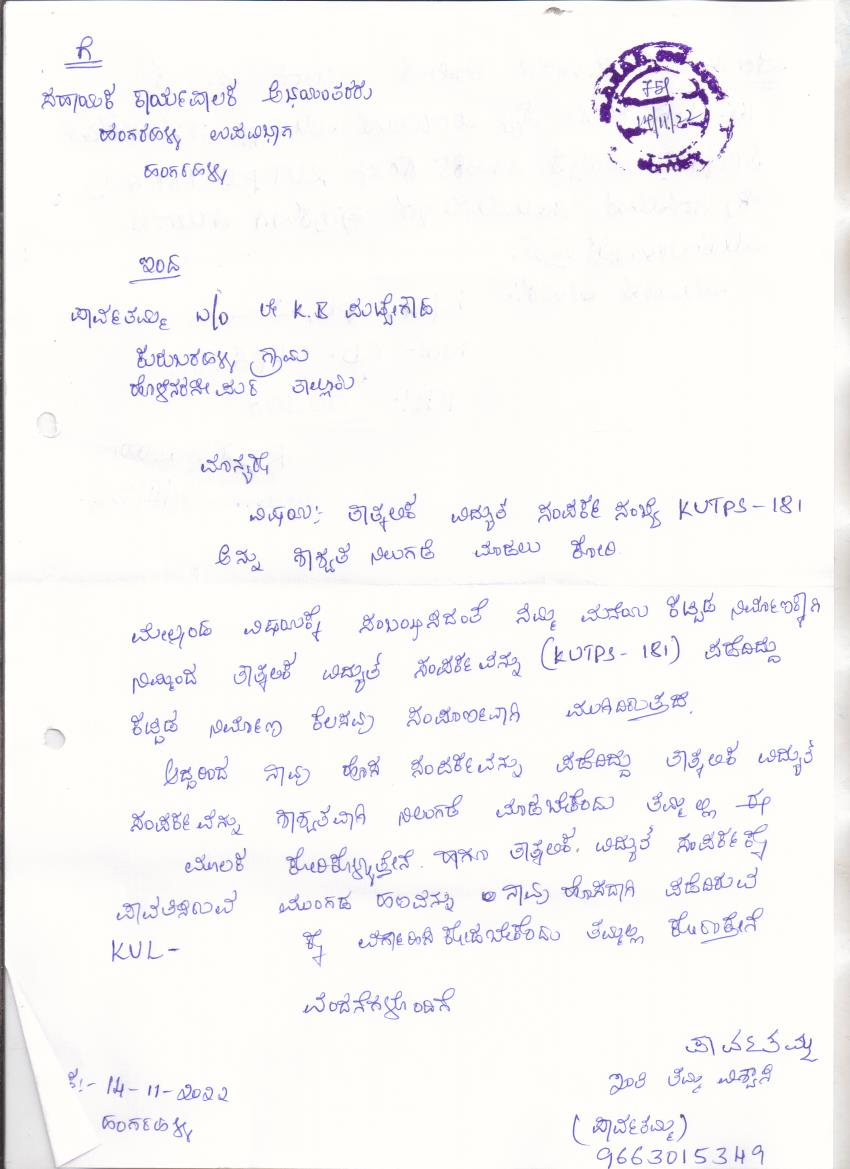 ಗೆ
751
14/11/22
ಸಹಾಯಕ ಕಾರ್ಯಪಾಲಕ ಅಭಿಯಂತರರು
ಹಂಗರಹಳ್ಳಿ ಉಪವಿಭಾಗ
ಹಂಗರಹಳ್ಳಿ
ಇಂದ
ಪಾರ್ವತಮ್ಮ W/o ಲೇ K.B ಪುಟ್ಟೇಗೌಡ
ಕುರುಬರಹಳ್ಳಿ ಗ್ರಾಮ
ಹೊಳೆನರಸೀಪುರ ತಾಲ್ಲೂಕು
ಮಾನ್ಯರೇ
ವಿಷಯ:- ತಾತ್ಕಲಿಕ ವಿದ್ಯುತ ಸಂಪರ್ಕ ಸಂಖ್ಯೆ KUTPS-181
ಅನ್ನು ಶಾಶ್ವತ ನಿಲುಗಡೆ ಮಾಡಲು ಕೋರಿ.
ಮೇಲ್ಕಂಡ ವಿಷಯಕ್ಕೆ ಸಂಬಂಧಿಸಿದಂತೆ ನಮ್ಮ ಮನೆಯ ಕಟ್ಟಡ ನಿರ್ಮಾಣಕ್ಕಾಗಿ
ನಿಮ್ಮಿಂದ ತಾತ್ಕಲಿಕ ವಿದ್ಯುತ ಸಂಪರ್ಕವನ್ನು (KUTPS-181) ಪಡೆದಿದ್ದು
ಕಟ್ಟಡ ನಿರ್ಮಾಣ ಕೆಲಸವು ಸಂಪೂರ್ಣವಾಗಿ ಮುಗಿದಿರುತ್ತದೆ.
ಆದ್ದರಿಂದ ನಾವು ಹೊಸ ಸಂಪರ್ಕವನ್ನು ಪಡೆದಿದ್ದು ತಾತ್ಕಲಿಕ ವಿದ್ಯುತ
ಸಂಪರ್ಕವನ್ನು ಶಾಶ್ವತವಾಗಿ ನಿಲುಗಡೆ ಮಾಡಬೇಕೆಂದು ತಮ್ಮಲ್ಲಿ ಈ
ಮೂಲಕ ಕೋರಿಕೊಳ್ಳುತ್ತೇನೆ. ಹಾಗೂ ತಾತ್ಕಲಿಕ ವಿದ್ಯುತ ಸಂಪರ್ಕಕ್ಕೆ
ಪಾವತಿಸಿರುವ ಮುಂಗಡ ಹಣವನ್ನು ನಾವು ಹೊಸದಾಗಿ ಪಡೆದಿರುವ
KUL- ಕ್ಕೆ ವರ್ಗಾಹಿಸಿ ಕೊಡಬೇಕೆಂದು ತಮ್ಮಲ್ಲಿ ಕೋರುತ್ತೇನೆ
ವಂದನೆಗಳೊಂದಿಗೆ
ಪಾರ್ವತಮ್ಮ
ಇಂತಿ ತಮ್ಮ ವಿಶ್ವಾಸಿ
ದಿ:- 14-11-2022
ಹಂಗರಹಳ್ಳಿ
(ಪಾರ್ವತಮ್ಮ)
9663015349